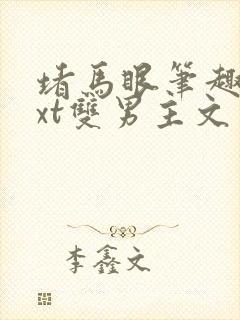 堵馬眼筆趣
xt雙男主文
李鑫文